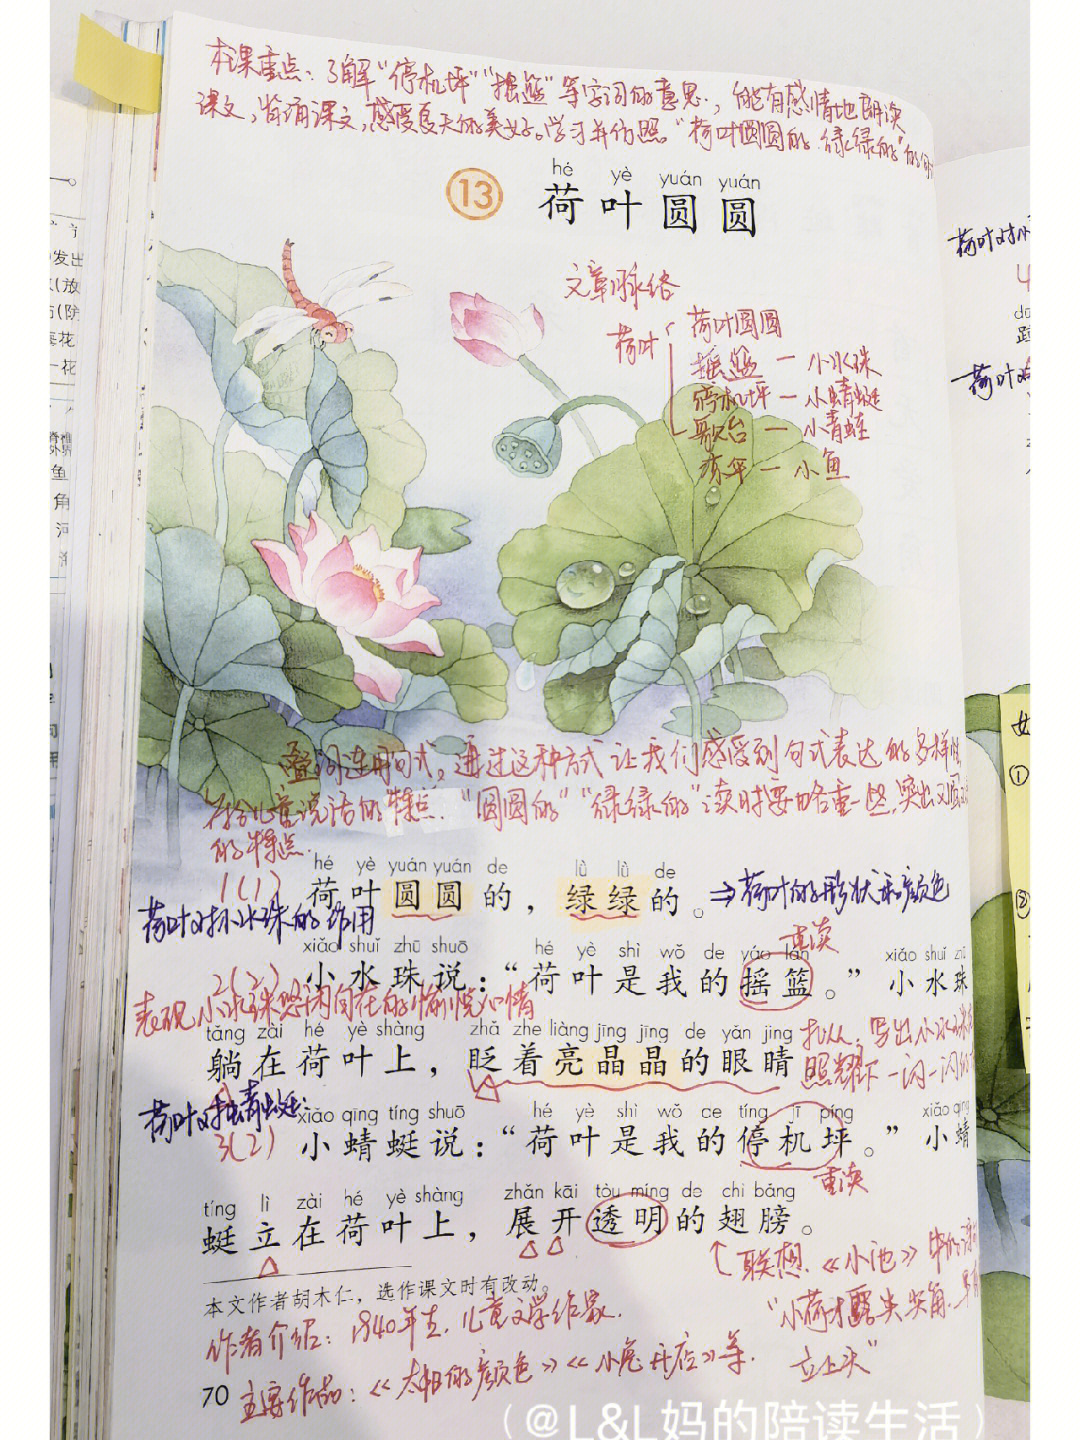 本课重点：了解“停机坪”“摇篮”等字词的意思，能有感情地朗读
课文，背诵课文，感受夏天的美好。学习并仿照“荷叶圆圆的，绿绿的”的
hé yè yuán yuán
13 荷叶圆圆
文章脉络
荷叶
荷叶圆圆
摇篮—小水珠
停机坪—小蜻蜓
歌台—小青蛙
凉伞—小鱼
荷叶对小
荷叶对
叠词连用句式，通过这种方式让我们感受到句式表达的多样性
符合儿童说话的特点．“圆圆的”“绿绿的”读时要略重一些，突出
的特点．
hé yè yuán yuán de lǜ lǜ de
1(1) 荷叶圆圆的，绿绿的。⇒荷叶的形状和颜色
荷叶对小水珠的作用
重读
xiǎo shuǐ zhū shuō hé yè shì wǒ de yáo lán xiǎo shuǐ zū
2(2) 小水珠说：“荷叶是我的摇篮。”小水珠
表现小水珠悠闲自在的愉悦心情
tǎng zài hé yè shàng zhǎ zhe liàng jīng jīng de yǎn jing
躺在荷叶上，眨着亮晶晶的眼睛
拟人，写出小水珠
照耀下一闪一闪的
荷叶对小蜻蜓：
xiǎo qīng tíng shuō hé yè shì wǒ de tíng jī píng xiǎo qīng
3(2) 小蜻蜓说：“荷叶是我的停机坪。”小蜻
重读
tíng lì zài hé yè shàng zhǎn kāi tòu míng de chì bǎng
蜓立在荷叶上，展开透明的翅膀。
联想．《小池》中的诗
“小荷才露尖尖角，早有
立上头”
本文作者胡木仁，选作课文时有改动。
作者介绍：1940年生．儿童文学作家．
主要作品：《太阳的颜色》《小兔开店》等．
70
（@L&L妈的陪读生活）